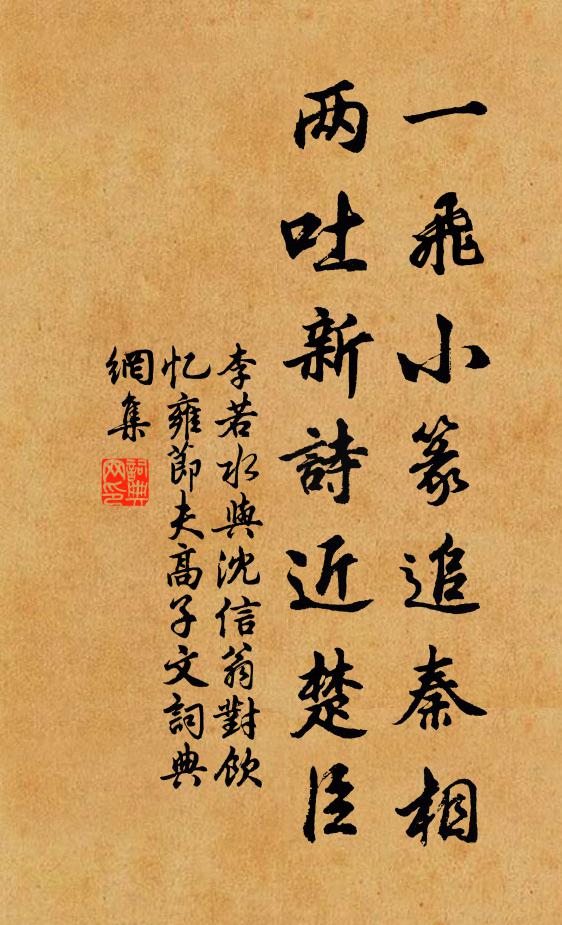 一飛小篆追秦相
两吐新詩近楚臣
李若水與沈信翁對飲
忆雍節夫高子文詞典
網集
詞典
网印